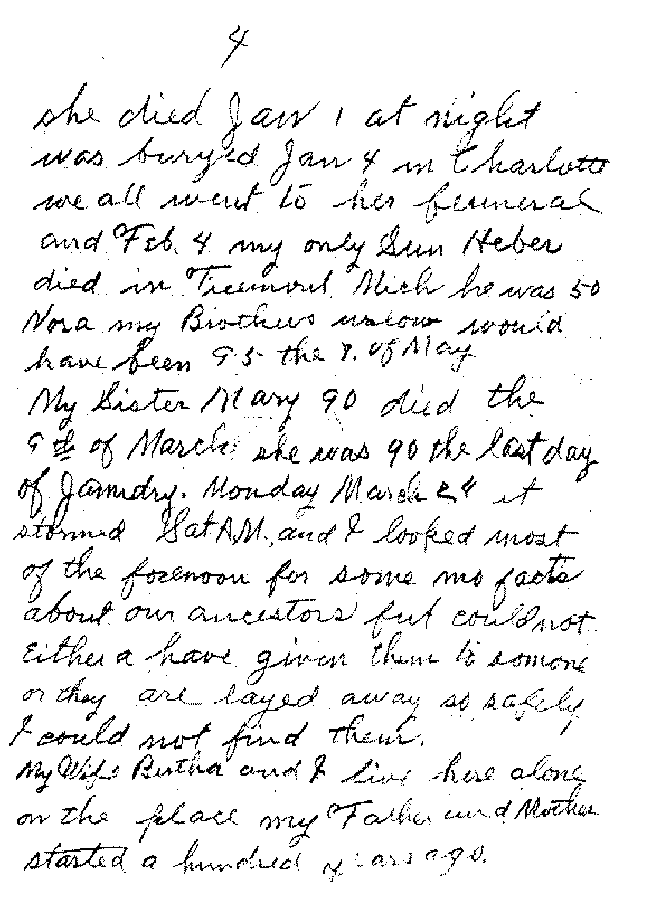 4
she died Jan 1 at night
was buryed Jan 4 in Charlotte
we all went to her funneral
and Feb. 4 my only Sun Heber
died in Mich he was 50
Nora my Brothers would
have been 95 the 7. of May
My Sister Mary 90 died the
9th of March she was 90 the last day
of Janudry. Monday March 24 it
stormed Sat A.M. and I looked most
of the forenoon for some mo facts
about our ancestors but could not
Either a have given them to somone
or they are layed away so safely
I could not find them.
My Wife Bertha and I live here alone
on the place my Father and Mother
started a hundred years ago.